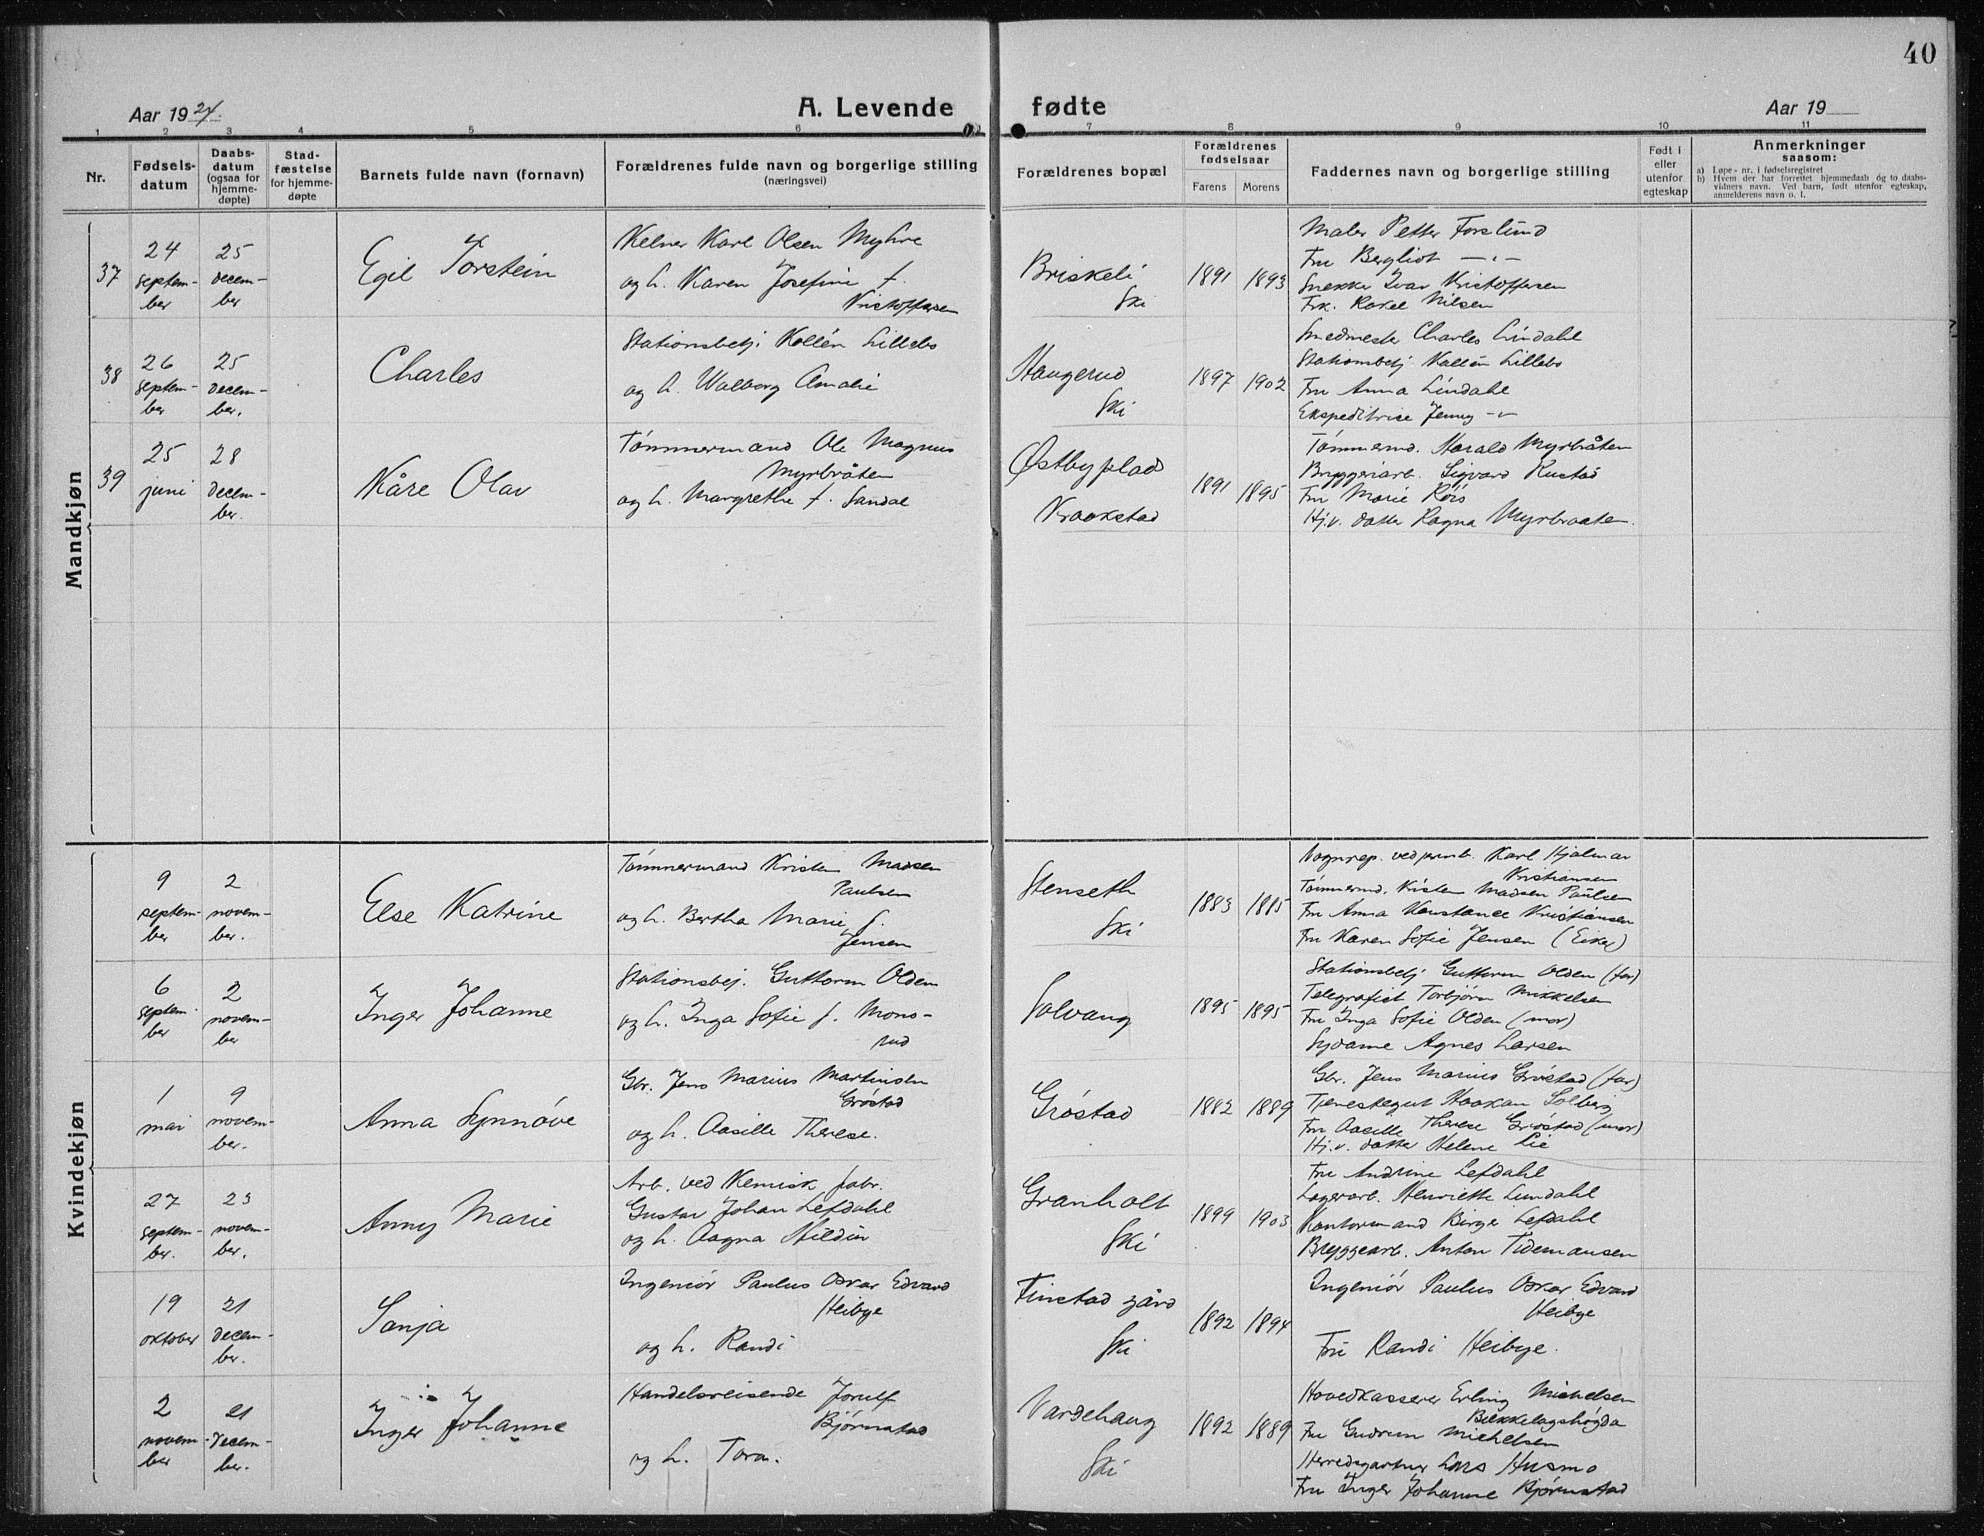 40
Aar 1924.
A. Levende fødte
Aar 19
1 2 3 4 5 6 7 8 9 10 11
Nr.
Fødsels-
datum
Daabs-
datum
(ogsaa for
hjemme-
døpte)
Stad-
fæstelse
for hjemme-
døpte
Barnets fulde navn (fornavn)
Forældrenes fulde navn og borgerlige stilling
(næringsvei)
Forældrenes bopæl
Forældrenes
fødselsaar
Farens Morens
Faddernes navn og borgerlige stilling
Født i
eller
utenfor
egteskap
Anmerkninger
saasom:
a) Løpe-nr. i fødselsregistret
b) Hvem der har forrettet hjemmedaab og to daabs-
vidners navn. Ved barn, født utenfor egteskap,
anmelderens navn o. l.
Mandkjøn
37
24
septem-
ber
25
decem-
ber
Egil Torstein
Kelner Karl Olsen Myhre
og h. Karen Josefine f.
Kristoffersen
Briskeli
Ski
1891 1893
Maler Petter Forslund
Fru Bergliot -"-
Snekker Ivar Kristoffersen
Frk. Rakel Nilsen
38
26
septem-
ber
25
decem-
ber.
Charles
Stationsbetj. Kollén Lillebo
og h. Walborg Amalie
Haugerud
Ski
1897 1902
Smedmester Charles Lindahl
Stationsbetj Kollén Lillebo
Fru Anna Lindahl
Ekspeditrise Jenny -"-
39
25
juni
28
decem-
ber.
Kåre Olav
Tömmermand Ole Magnus
Myrbråten
og h. Margrethe f. Sandal
Østbyplads
Kraakstad
1891 1895
Tömmermd. Harald Myrbråten
Bryggeriarb. Sigvard Rustad
Fru Marie Röis
Hj.v. datter Ragna Myrbraaten.
Kvindekjøn
9
septem-
ber
2
novem-
ber.
Else Katrine
Tömmermand Kristen Madsen
Paulsen
og h. Bertha Marie f.
Jensen
Stenseth
Ski
1883 1885
Vognrep. ved jernb. Karl Hjalmar
Kristiansen
Tömmermd. Kristen Madsen Paulsen
Fru Anna Konstance Kristiansen
Fru Karen Sofie Jensen (Eker)
6
septem-
ber
2
novem-
ber
Inger Johanne
Stationsbetj. Guttorm Olden
og h. Inga Sofie f. Mono-
rud
Solvang
1895 1895
Stationsbetj. Guttorm Olden (far)
Telegrafist Torbjörn Mikkelsen
Fru Inga Sofie Olden (mor)
Sydame Agnes Larsen
1
mai
9
novem-
ber.
Anna Synnöve
Gbr. Jens Marius Martinsen
Gröstad
og h. Aasille Therese.
Gröstad
1882 1889
Gbr. Jens Marius Gröstad (far)
Tjenestegut Haakon Solberg
Fru Aasille Therese Gröstad (mor)
Hj.v. datter Helene Lie
27
septem-
ber.
23
novem-
ber.
Anny Marie
Arb. ved Kemisk fabr.
Gustav Johan Lefdahl
og h. Aagna Hildur
Granholt
Ski
1899 1903
Fru Andrine Lefdahl
Lagerarb. Henriette Lundahl
Kontormand Birger Lefdahl
Bryggearb. Anton Tidemansen
19
oktober
21
decem-
ber.
Sonja
Ingeniör Paulus Oskar Edvard
Heibye
og h. Randi
Finstad gård
Ski
1892 1894
Ingeniör Paulus Oskar Edvard
Heibye
Fru Randi Heibye.
2
novem-
ber
21
decem-
ber.
Inger Johanne
Handelsreisende Jorulf
Björnstad
og h. Tora.
Vardehaug
Ski
1892 1889
Hovedkasserer Erling Michelsen
Bækkelagshögda
Fru Gudrun Michelsen
Herredsgartner Lars Husmo
Fru Inger Johanne Björnstad